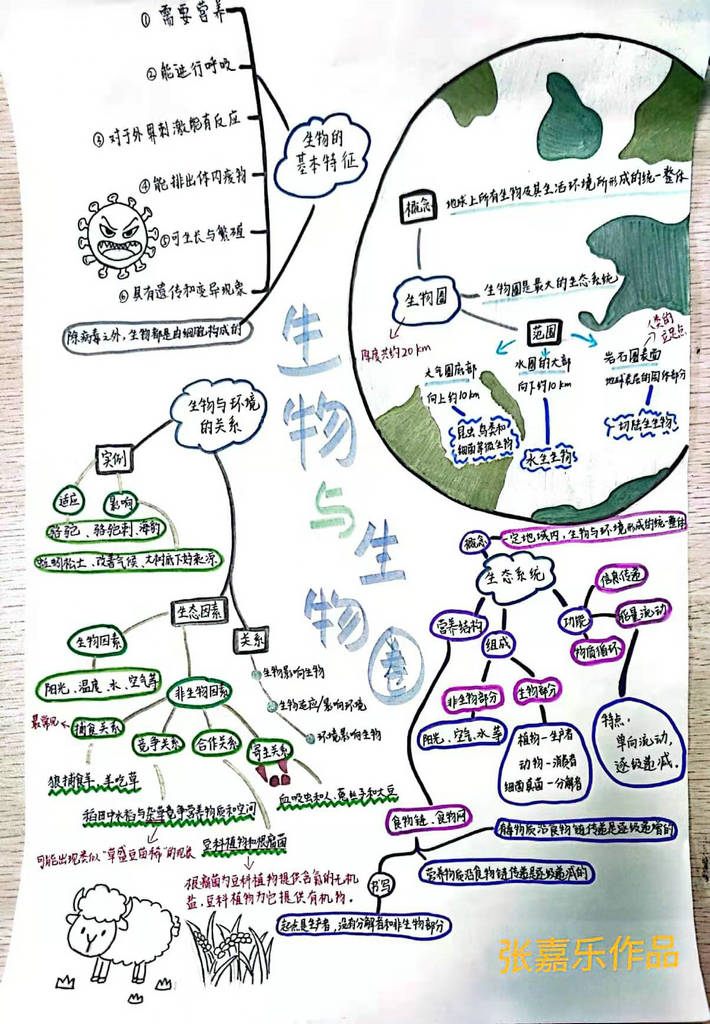 ① 需要营养
② 能进行呼吸
③ 对于外界刺激能有反应
④ 能排出体内废物
⑤ 可生长与繁殖
⑥ 具有遗传和变异现象
除病毒之外，生物都是由细胞构成的
生物的
基本特征
概念
地球上所有生物及其生活环境所形成的统一整体
生物圈
生物圈是最大的生态系统
厚度共约20km
范围
大气圈底部
向上约10km
昆虫、鸟类和
细菌等微生物
水圈的大部
向下约10km
水生生物
人类的
立足点
岩石圈表面
一切陆生生物
生物与生物圈
生物与环境
的关系
实例
适应
影响
骆驼、骆驼刺、海豹
蚯蚓松土、改善气候、大树底下好乘凉
生态因素
生物因素
阳光、温度、水、空气等
非生物因素
最常见
捕食关系
竞争关系
合作关系
寄生关系
狼捕食羊、羊吃草
稻田中水稻与杂草竞争营养物质和空间
可能出现类似“草盛豆苗稀”的现象
豆科植物和根瘤菌
根瘤菌为豆科植物提供含氮的无机
盐，豆科植物为它提供有机物。
血吸虫和人、菟丝子和大豆
关系
生物影响生物
生物适应/影响环境
环境影响生物
概念
一定地域内，生物与环境形成的统一整体
生态系统
营养结构
组成
功能
信息传递
能量流动
物质循环
非生物部分
阳光、空气、水等
生物部分
植物—生产者
动物—消费者
细菌真菌—分解者
特点：
单向流动，
逐级递减。
食物链、食物网
营养物质沿食物链传递是逐级递减的
书写
起点是生产者，没有分解者和非生物部分
张嘉乐作品